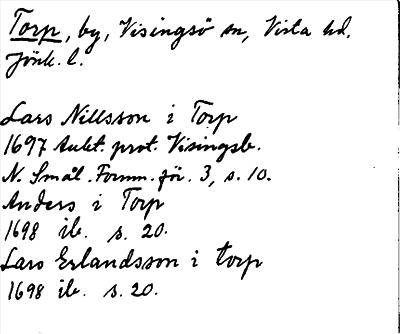 Torp, by, Visingsö sn, Vista hd,
Jönk. l.
Lars Nillsson i Torp
1697 Aukt. prot. Visingsb.
N. Smål. Fornm. för. 3, s. 10.
Anders i Torp
1698 ib. s. 20.
Lars Erlandsson i torp
1698 ib. s. 20.